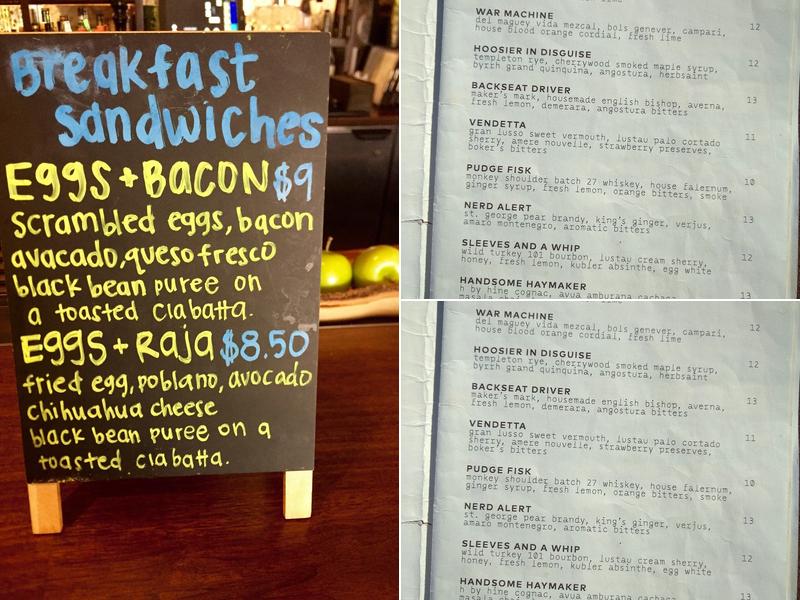 Breakfast
sandwiches
EGGS + BACON $9
scrambled eggs, bacon
avacado, queso fresco
black bean puree on
a toasted ciabatta.
EGGS + Raja $8.50
fried egg, poblano, avocado
chihuahua cheese
black bean puree on a
toasted ciabatta.
WAR MACHINE
del maguey vida mezcal, bols genever, campari, 12
house blood orange cordial, fresh lime
HOOSIER IN DISGUISE
templeton rye, cherrywood smoked maple syrup, 12
byrrh grand quinquina, angostura, herbsaint
BACKSEAT DRIVER
maker's mark, housemade english bishop, averna, 13
fresh lemon, demerara, angostura bitters
VENDETTA
gran lusso sweet vermouth, lustau palo cortado 11
sherry, amere nouvelle, strawberry preserves,
boker's bitters
PUDGE FISK
monkey shoulder batch 27 whiskey, house falernum, 10
ginger syrup, fresh lemon, orange bitters, smoke
NERD ALERT
st. george pear brandy, king's ginger, verjus, 13
amaro montenegro, aromatic bitters
SLEEVES AND A WHIP
wild turkey 101 bourbon, lustau cream sherry, 12
honey, fresh lemon, kubler absinthe, egg white
HANDSOME HAYMAKER
h by hine cognac, avua amburana cachaca 13
WAR MACHINE
del maguey vida mezcal, bols genever, campari, 12
house blood orange cordial, fresh lime
HOOSIER IN DISGUISE
templeton rye, cherrywood smoked maple syrup, 12
byrrh grand quinquina, angostura, herbsaint
BACKSEAT DRIVER
maker's mark, housemade english bishop, averna, 13
fresh lemon, demerara, angostura bitters
VENDETTA
gran lusso sweet vermouth, lustau palo cortado 11
sherry, amere nouvelle, strawberry preserves,
boker's bitters
PUDGE FISK
monkey shoulder batch 27 whiskey, house falernum, 10
ginger syrup, fresh lemon, orange bitters, smoke
NERD ALERT
st. george pear brandy, king's ginger, verjus, 13
amaro montenegro, aromatic bitters
SLEEVES AND A WHIP
wild turkey 101 bourbon, lustau cream sherry, 12
honey, fresh lemon, kubler absinthe, egg white
HANDSOME HAYMAKER
h by hine cognac, avua amburana cachaca 13